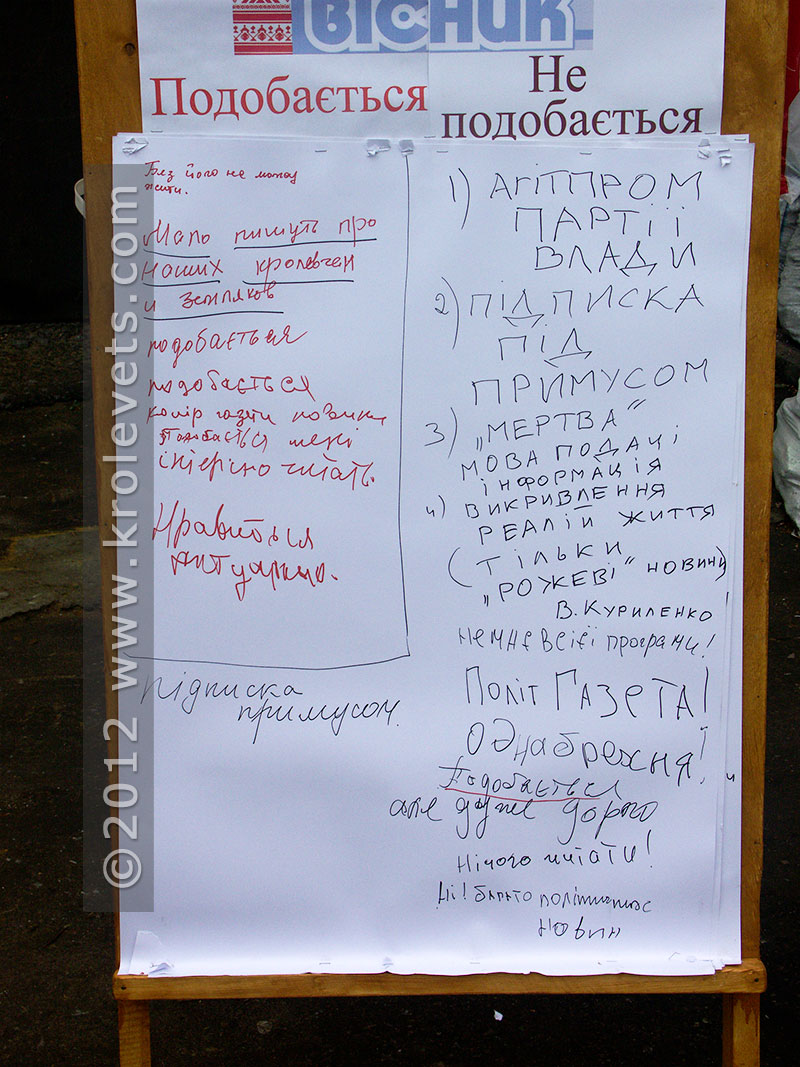 ВІСНИК
Подобається
Не
подобається
Без його не можу
жити.
Мало пишуть про
наших кролевчан
и земляков
подобається
подобається
колір газети
Подобається мені
інтерісно читать.
Нравиться
актуально.
підписка
примусом.
1) АГІТПРОМ
ПАРТІЇ
ВЛАДИ
2) ПІДПИСКА
ПІД
ПРИМУСОМ
3) „МЕРТВА“
МОВА ПОДАЧІ
ІНФОРМАЦІЯ
4) ВИКРИВЛЕННЯ
РЕАЛІЙ ЖИТТЯ
(ТІЛЬКИ
„РОЖЕВІ“ НОВИНИ)
В. КУРИЛЕНКО
Нем не всієї програми!
ПОЛІТ ГАЗЕТА!
ОДНа брехня!
Подобається
але дуже дорого
Нічого читати!
Ні! багато політичних
новин
©2012 www.krolevets.com